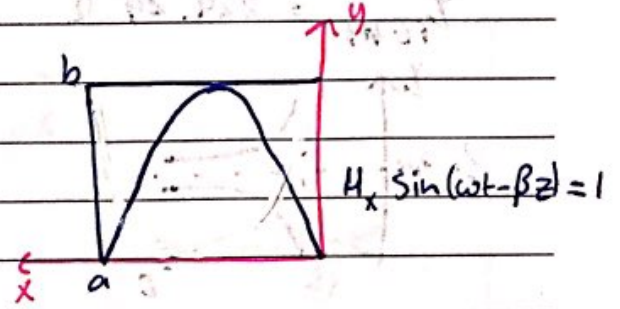 y
b
Hₓ sin(ωt-βz)=1
x
a